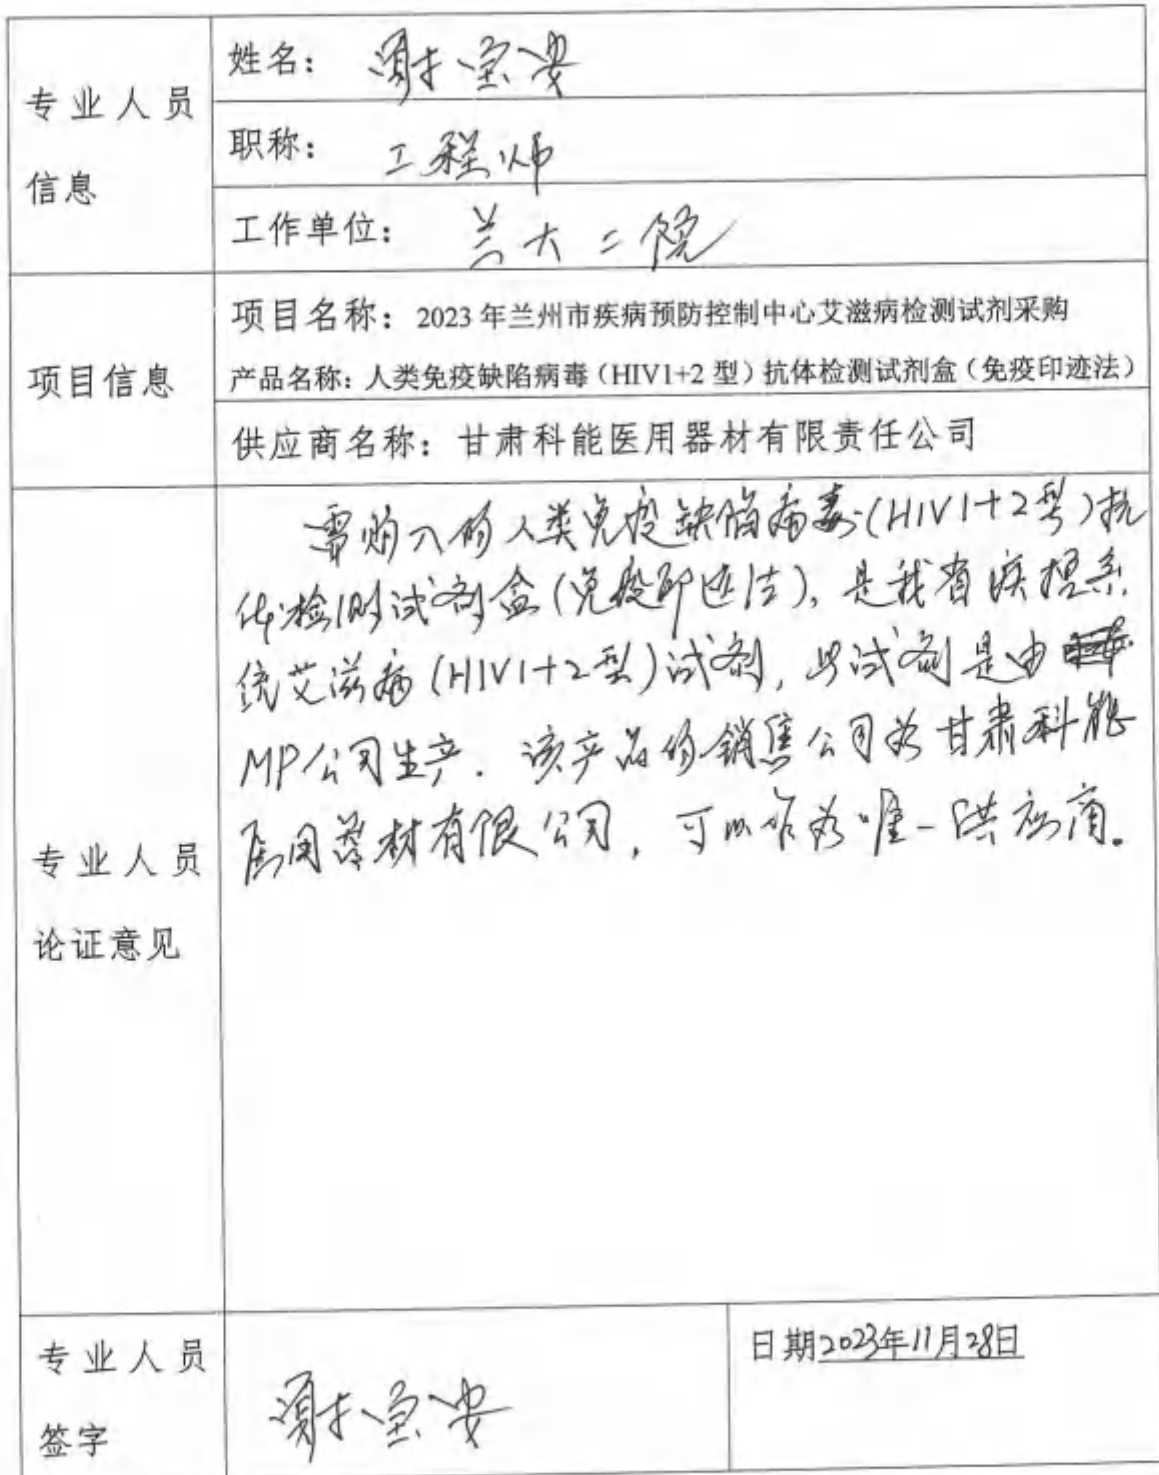 专业人员
信息
姓名： 谢宝安
职称： 工程师
工作单位： 兰大二院
项目信息
项目名称：2023年兰州市疾病预防控制中心艾滋病检测试剂采购
产品名称：人类免疫缺陷病毒（HIV1+2型）抗体检测试剂盒（免疫印迹法）
供应商名称：甘肃科能医用器材有限责任公司
专业人员
论证意见
需购入的人类免疫缺陷病毒(HIV1+2型)抗
体检测试剂盒(免疫印迹法)，是我省疾控系
统艾滋病(HIV1+2型)试剂，此试剂是由
MP公司生产．该产品的销售公司为甘肃科能
医用器材有限公司，可以作为唯一供应商。
专业人员
签字
谢宝安
日期2023年11月28日